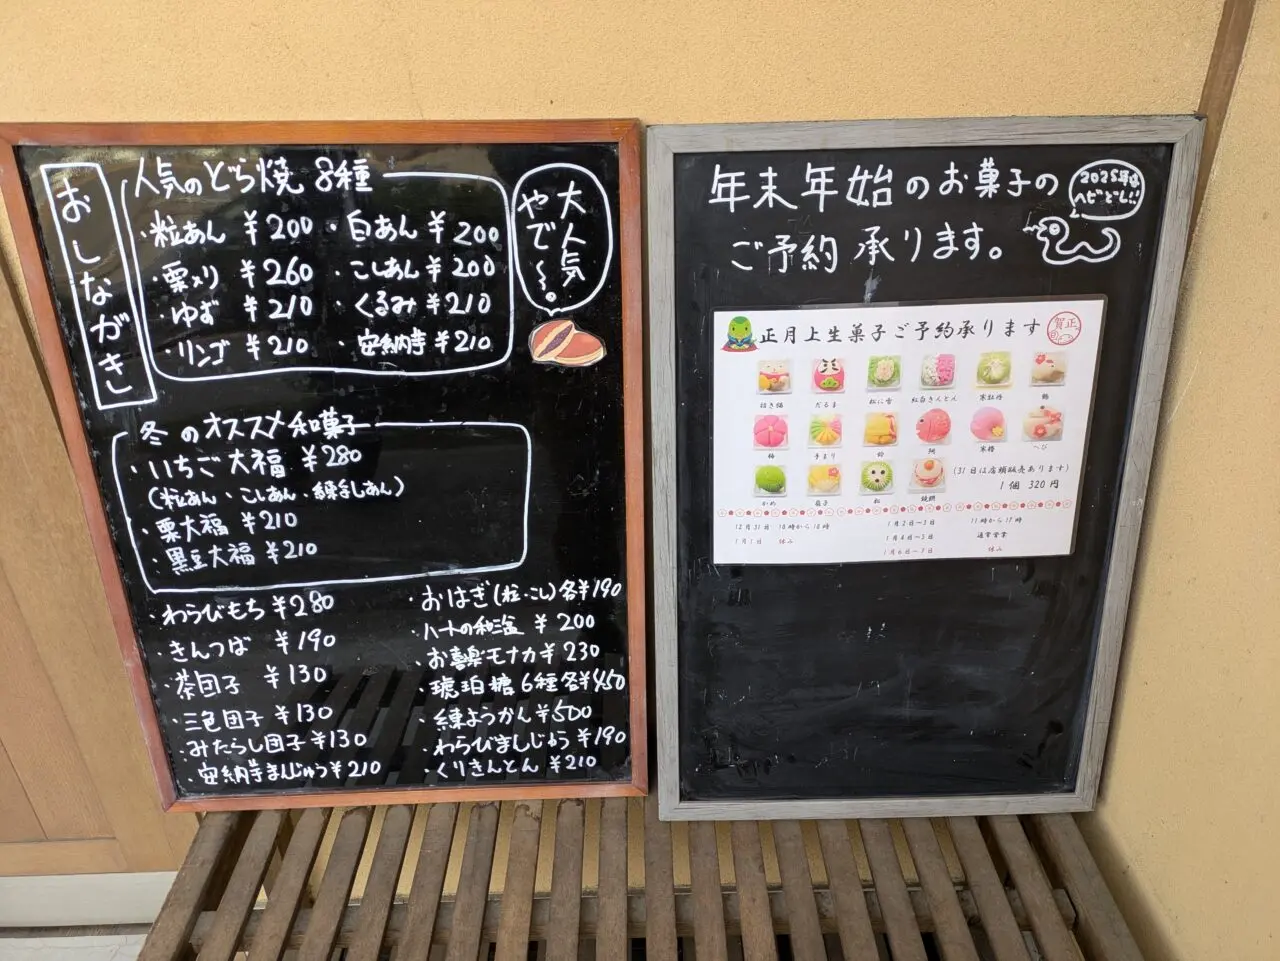 おしながき
人気のどら焼 8種
・粒あん ¥200 ・白あん ¥200
・栗入り ¥260 ・こしあん ¥200
・ゆず ¥210 ・くるみ ¥210
・リンゴ ¥210 ・安納芋 ¥210
大人気
やで〜。
冬のオススメ和菓子
・いちご大福 ¥280
(粒あん、こしあん、練乳しあん)
・栗大福 ¥210
・黒豆大福 ¥210
・わらびもち ¥280
・きんつば ¥190
・茶団子 ¥130
・三色団子 ¥130
・みたらし団子 ¥130
・安納芋まんじゅう ¥210
・おはぎ(粒・こし)各¥190
・ハートの和三盆 ¥200
・お喜楽モナカ ¥230
・琥珀糖 6種 各¥450
・練ようかん ¥500
・わらびまんじゅう ¥190
・くりきんとん ¥210
年末年始のお菓子の
ご予約 承ります。
2025年は
ヘビどし!!
正月上生菓子ご予約承ります
賀正
招き猫 だるま 松に雪 紅白きんとん 寒牡丹 鶴
梅 手まり 鈴 鯛 寒椿 へび
かめ 扇子 松 鏡餅
(31日は店頭販売あります)
1個 320円
12月31日 10時から18時
1月1日 休み
1月2日〜3日 11時から17時
1月4日〜5日 通常営業
1月6日〜7日 休み